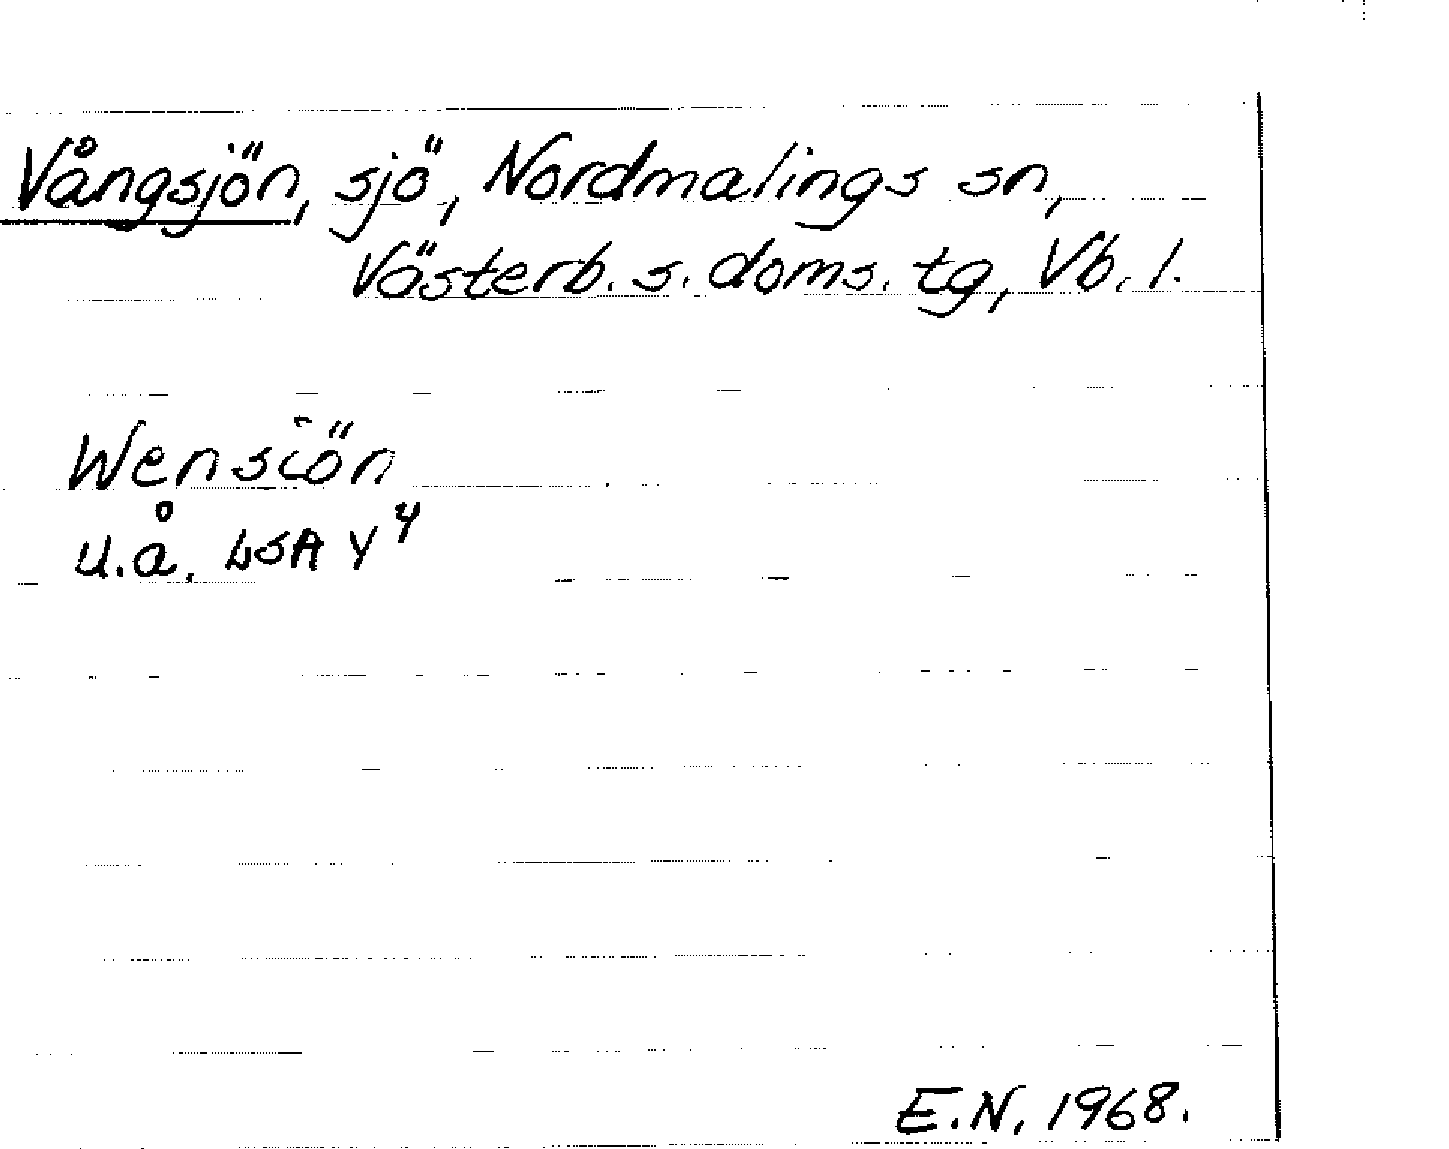 Vångsjön, sjö, Nordmalings sn,
Västerb. s. doms. tg, Vb. l.
Wensiön
u.å. LSA Y⁴
E.N. 1968.